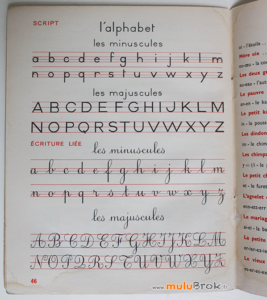 SCRIPT
l'alphabet
les minuscules
a b c d e f g h i j k l m
n o p q r s t u v w x y z
les majuscules
A B C D E F G H I J K L M
N O P Q R S T U V W X Y Z
ÉCRITURE LIÉE
les minuscules
a b c d e f g h i j k l m
n o p q r s t u v w x y z
les majuscules
A B C D E F G H I J K L M
N O P Q R S T U V W X Y Z
46
www.muluBrok.fr
Les deux
La pauvre
Le petit
Les dindons
Le petit
L'agnelet
Le mariage
La petite
Le vieux